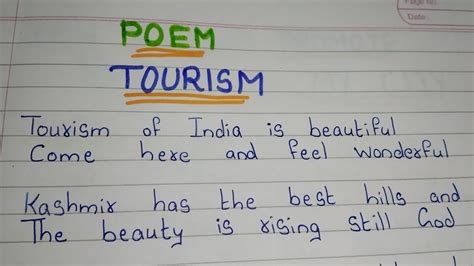 Page No.
Date
POEM
TOURISM
Tourism of India is beautiful
Come here and feel wonderful
Kashmir has the best hills and
The beauty is rising still God